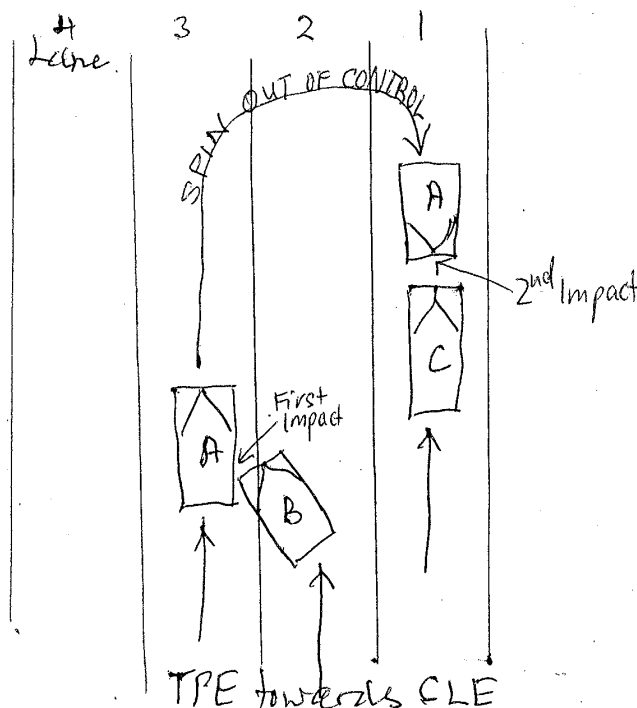 4 3 2 1
Lane.
SPIN OUT OF CONTROL
A
2nd Impact
C
First
Impact
A
B
TPE towards CLE